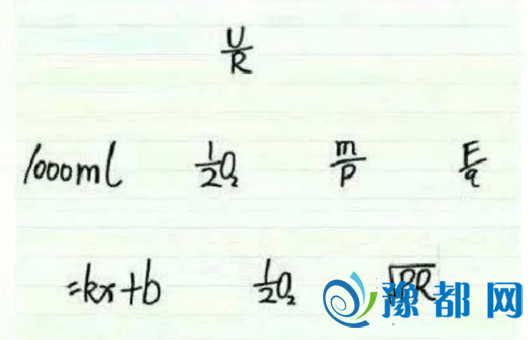 U/R
1000ml ½O₂ m/ρ F/q
=kx+b ½O₂ √PR
豫都网